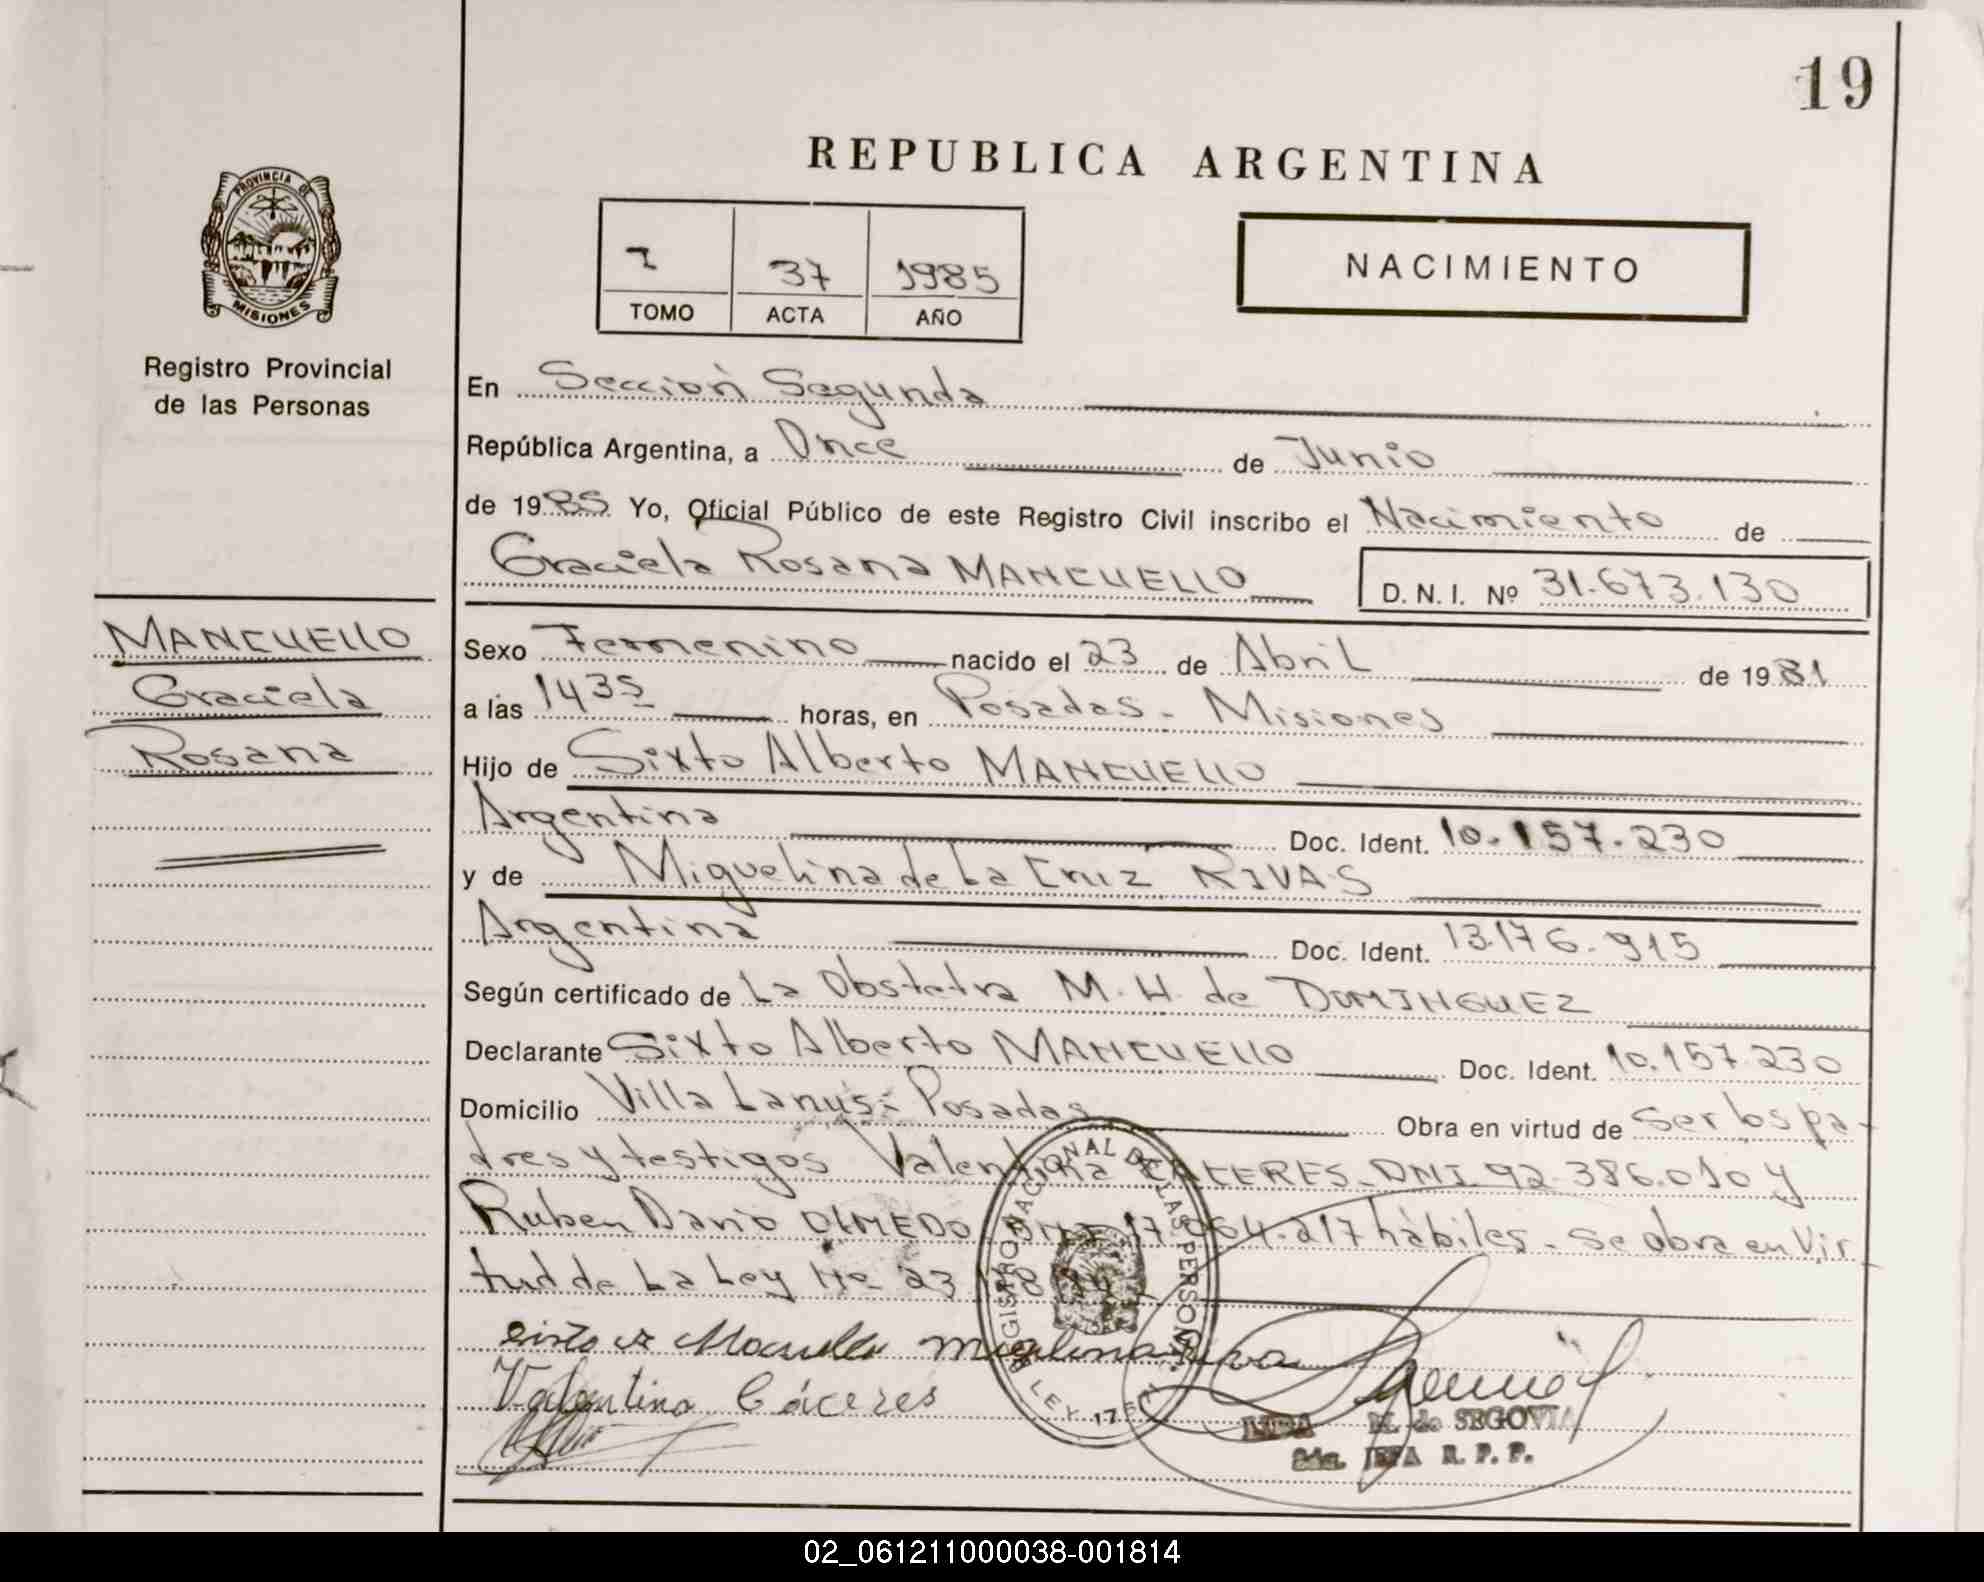 19
REPUBLICA ARGENTINA
PROVINCIA DE
MISIONES
Registro Provincial
de las Personas
I 37 1985
TOMO ACTA AÑO
NACIMIENTO
En Sección Segunda
República Argentina, a Once de Junio
de 1985 Yo, Oficial Público de este Registro Civil inscribo el Nacimiento de
Graciela Rosana MANCUELLO D.N.I. Nº 31.673.130
MANCUELLO
Graciela
Rosana
Sexo Femenino nacido el 23 de Abril de 1981
a las 1435 horas, en Posadas - Misiones
Hijo de Sixto Alberto MANCUELLO
Argentina Doc. Ident. 10.157.230
y de Miguelina de La Cruz RIVAS
Argentina Doc. Ident. 13.176.915
Según certificado de La Obstetra M. H. de DOMINGUEZ
Declarante Sixto Alberto MANCUELLO Doc. Ident. 10.157.230
Domicilio Villa Lanús - Posadas Obra en virtud de ser los pa-
dres y testigos Valentina CACERES DNI 92.386.010 y
Ruben Dario OLMEDO DNI 17.064.217 hábiles - Se obra en Vir
tud de La Ley Nº 23
REGISTRO NACIONAL DE LAS PERSONAS
LEY
Valentina Cáceres
M. de SEGOVIA
JEFA R. P. P.
02_061211000038-001814